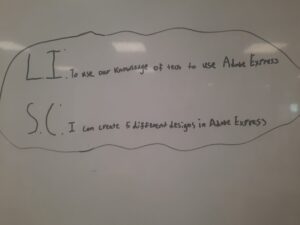 L.I. To use our knowledge of tech to use Adobe Express
S.C. I can create 5 different designs in Adobe Express